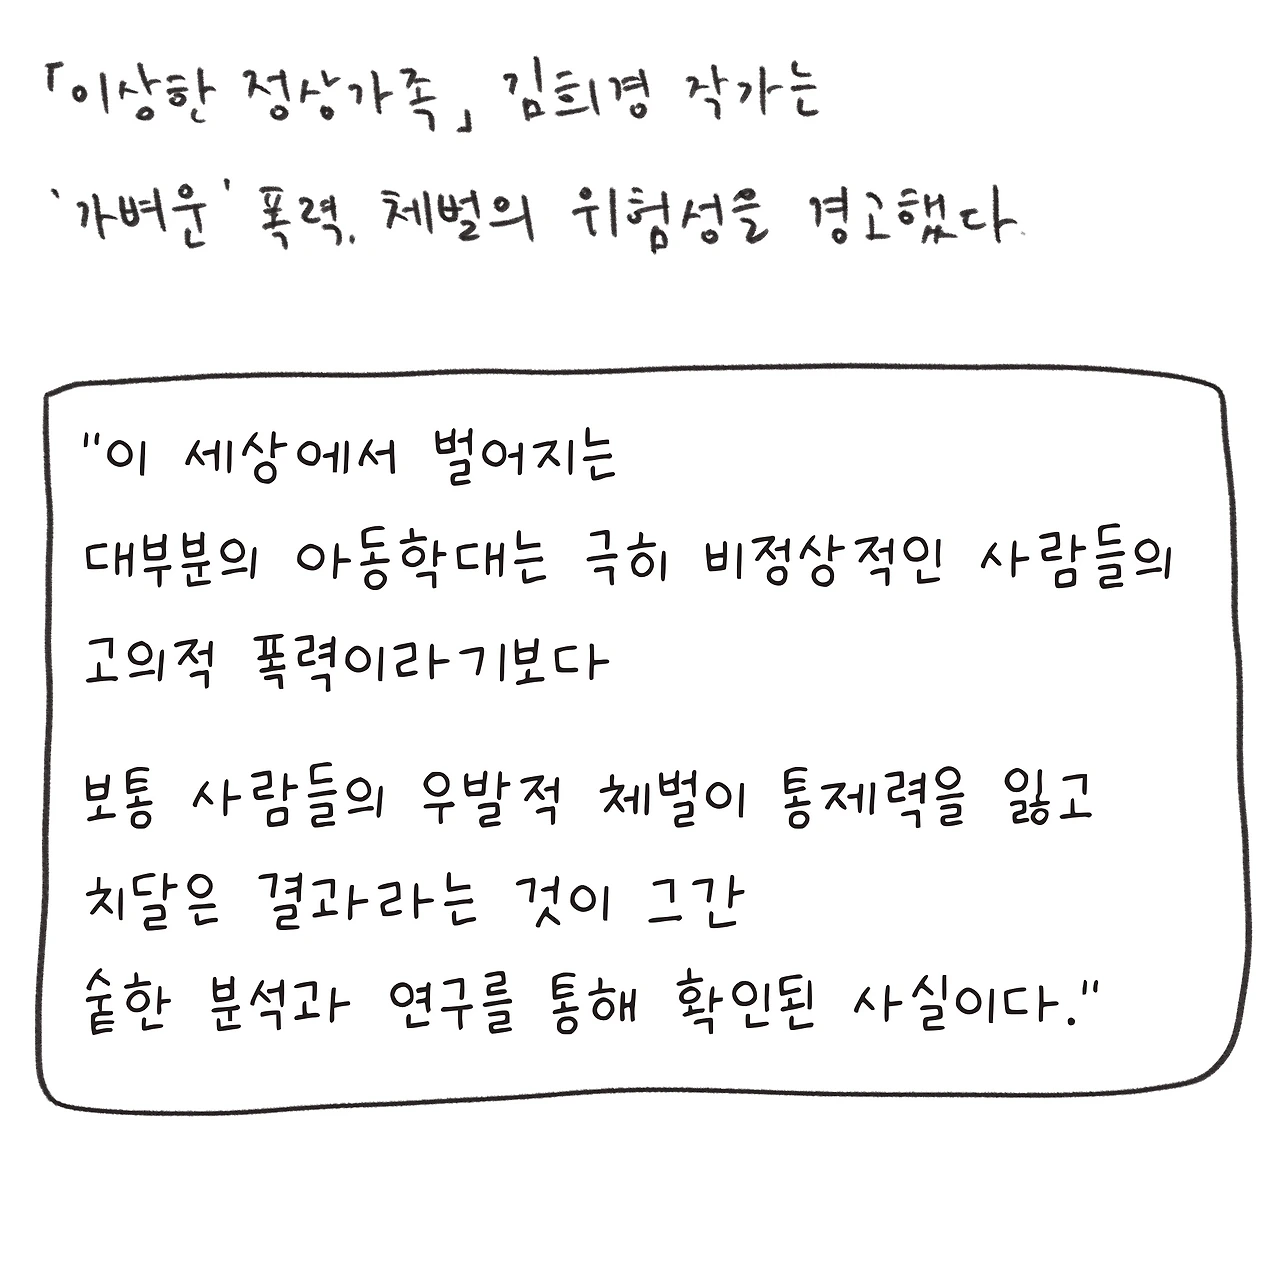 「이상한 정상가족」 김희경 작가는
'가벼운' 폭력. 체벌의 위험성을 경고했다.
"이 세상에서 벌어지는
대부분의 아동학대는 극히 비정상적인 사람들의
고의적 폭력이라기보다
보통 사람들의 우발적 체벌이 통제력을 잃고
치달은 결과라는 것이 그간
숱한 분석과 연구를 통해 확인된 사실이다."